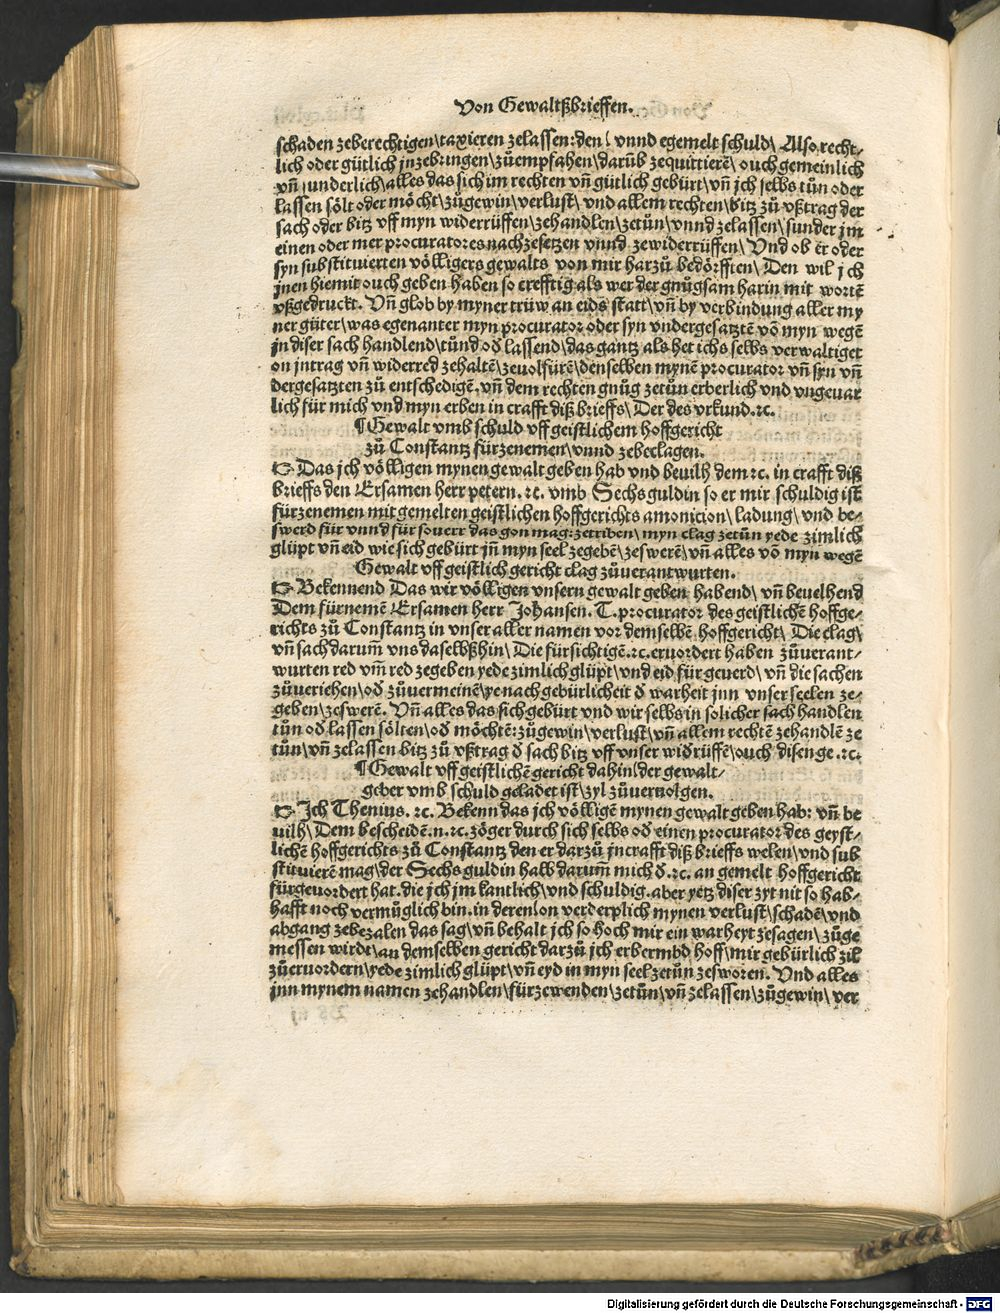 Von Gewaltßbrieffen.
schaden zeberechtigen\taxieren zelassen: den\ vnnd egemelt schuld\ Also recht⸗
lich oder gütlich jnzebringen\zůempfahen\darüb zequittierē\ ouch gemeinlich
vñ sunderlich\alles das sich im rechten vñ gütlich gebürt\vñ jch selbs tůn oder
lassen sölt oder möcht\zůgewin\verlust\ vnd allem rechten\bitz zů vßtrag der
sach oder bitz vff myn widerrůffen\zehandlen\zetůn\vnnd zelassen\sunder jm
einen oder mer procuratores nachzesetzen vnnd zewiderrůffen\ Vnd ob er oder
syn substituierten völligers gewalts von mir harzů bedörfften\ Den wil jch
jnen hiemit ouch geben haben so crefftig als wer der gnůgsam harin mit wortē
vßgedruckt. Vñ glob by myner trüw an eids statt\vñ by verbindung aller my
ner güter\was egenanter myn procurator oder syn vndergesatztē vō myn wegē
jn diser sach handlend\tůnd oď lassend\das gantz als het ichs selbs verwaltiget
on jntrag vñ widerred zehaltē\zeuolfürē\denselben mynē procurator vñ syn vñ
dergesatzten zů entschedigē\vñ dem rechten gnůg zetůn erberlich vnd vngeuar
lich für mich vnd myn erben in crafft diß brieffs\ Der des vrkund.ꝛc.
¶ Gewalt vmb schuld vff geistlichem hoffgericht
zů Constantz fürzenemen\vnnd zebeclagen.
Das jch völligen mynen gewalt geben hab vnd beuilh dem ꝛc. in crafft diß
brieffs den Ersamen herr petern. ꝛc. vmb Sechs guldin so er mir schuldig ist
fürzenemen mit gemelten geistlichen hoffgerichts amonicion\ladung\ vnd be⸗
swerd für vnnd für souerr das gon mag: zetriben\ myn clag zetůn yede zimlich
glüpt vñ eid wie sich gebürt jñ myn seel zegebē\zeswerē\vñ alles vō myn wegē
Gewalt vff geistlich gericht clag zůuerantwurten.
Bekennend Das wir völligen vnsern gewalt geben habend\ vñ beuelhend
Dem fürnemē Ersamen herr Johansen. T. procurator des geistlichē hoffge⸗
richts zů Constantz in vnser aller namen vor demselbē hoffgericht\ Die clag\
vñ sach darum̄ vns daselbßhin\ Die fürsichtigē.ꝛc. eruordert haben zůuerant⸗
wurten red vm̄ red zegeben yede zimlich glüpt\vnd eid für geuerd\ vñ die sachen
zůueriehen\oď zůuermeinē\ye nach gebürlicheit ď warheit jnn vnser seelen ze⸗
geben\zeswerē. Vñ alles das sich gebürt vnd wir selbs in solicher sach handlen
tůn oď lassen sölten\oď möchtē: zůgewin\verlust\vñ allem rechtē zehandlē ze
tůn\vñ zelassen bitz zů vßtrag ď sach bitz vff vnser wiďrüffē\ouch disenge.ꝛc.
¶ Gewalt vff geistlichē gericht dahin\der gewalt⸗
geber vmb schuld geladet ist\zyl zůueruolgen.
Jch Thenius. ꝛc. Bekenn das jch völligē mynen gewalt geben hab: vñ be
uilh\ Dem bescheidē.n.ꝛc.zöger durch sich selbs oď einen procurator des geyst⸗
lichē hoffgerichts zů Constantz den er darzů jn crafft diß brieffs welen\vnd sub
stituierē mag\der Sechs guldin halb darum̄ mich ď.ꝛc. an gemelt hoffgericht
fürgeuordert hat.die jch jm kantlich\vnd schuldig.aber yetz diser zyt nit so hab⸗
hafft noch vermüglich bin.in deren\on verderplich mynen verlust\schadē\vnd
abgang zebezalen das sag\vñ behalt jch so hoch mir ein warheyt zesagen\zůge
messen wirde\an demselben gericht darzů jch erbermbd hoff\mir gebürlich zil
zůeruordern\yede zimlich glüpt\vñ eyd in myn seel zetůn zesworen. Vnd alles
jnn mynem namen zehandlen\fürzewenden\zetůn\vñ zelassen\zůgewin\ ver
Digitalisierung gefördert durch die Deutsche Forschungsgemeinschaft - DFG